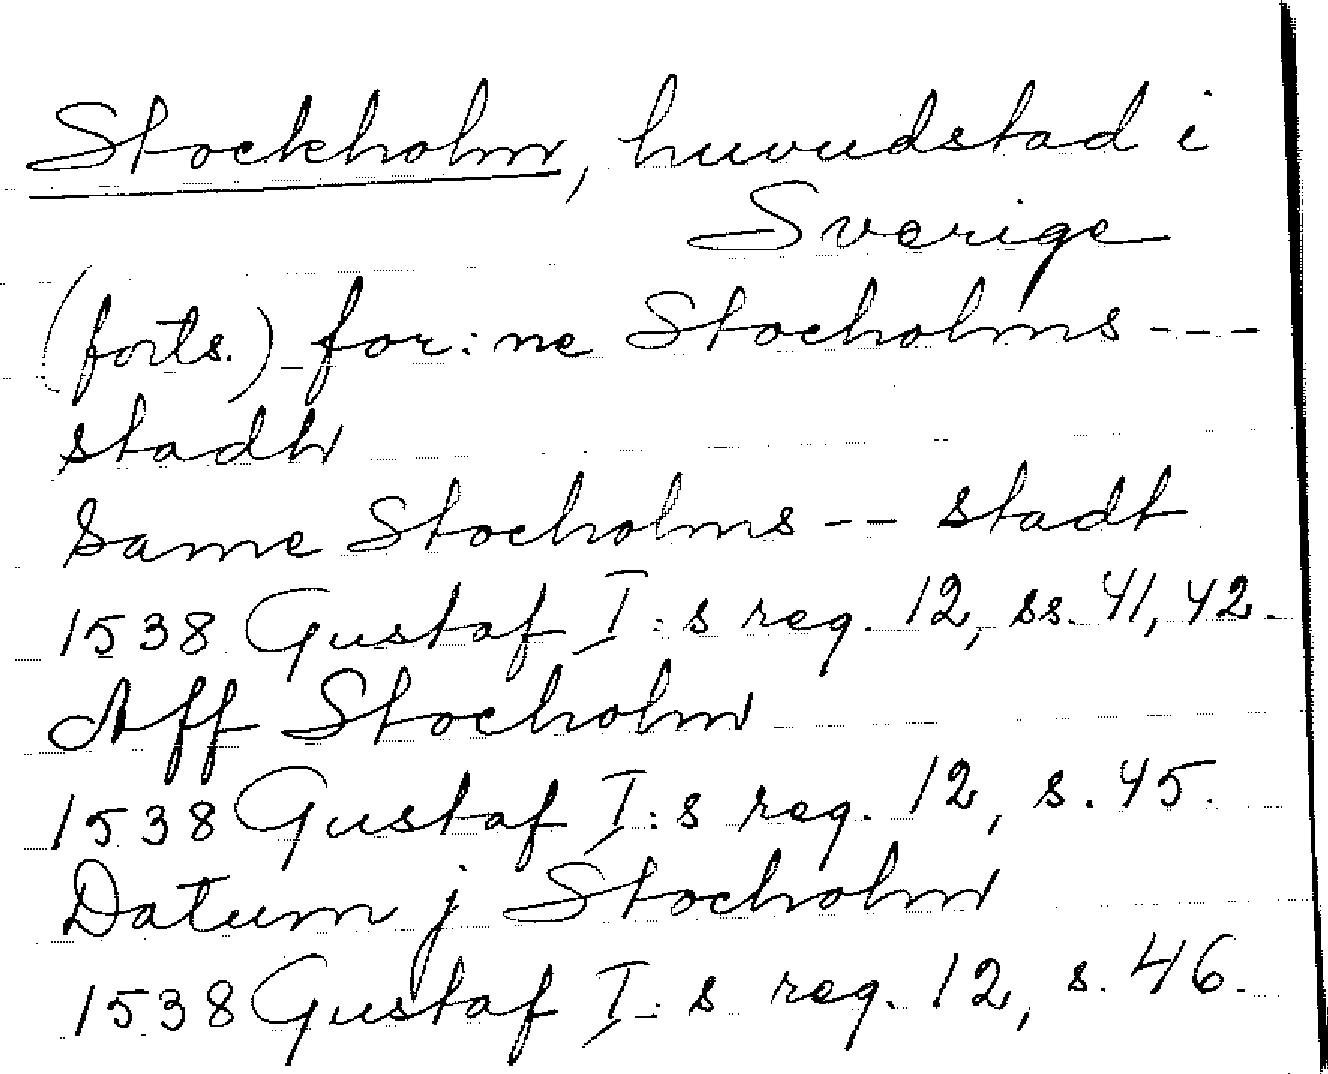 Stockholm, huvudstad i
Sverige
(forts.) for:ne Stocholms ---
stadh
Same Stocholms -- stadt
1538 Gustaf I:s reg. 12, ss. 41, 42.
Aff Stocholm
1538 Gustaf I:s reg. 12, s. 45.
Datum j Stocholm
1538 Gustaf I:s reg. 12, s. 46.